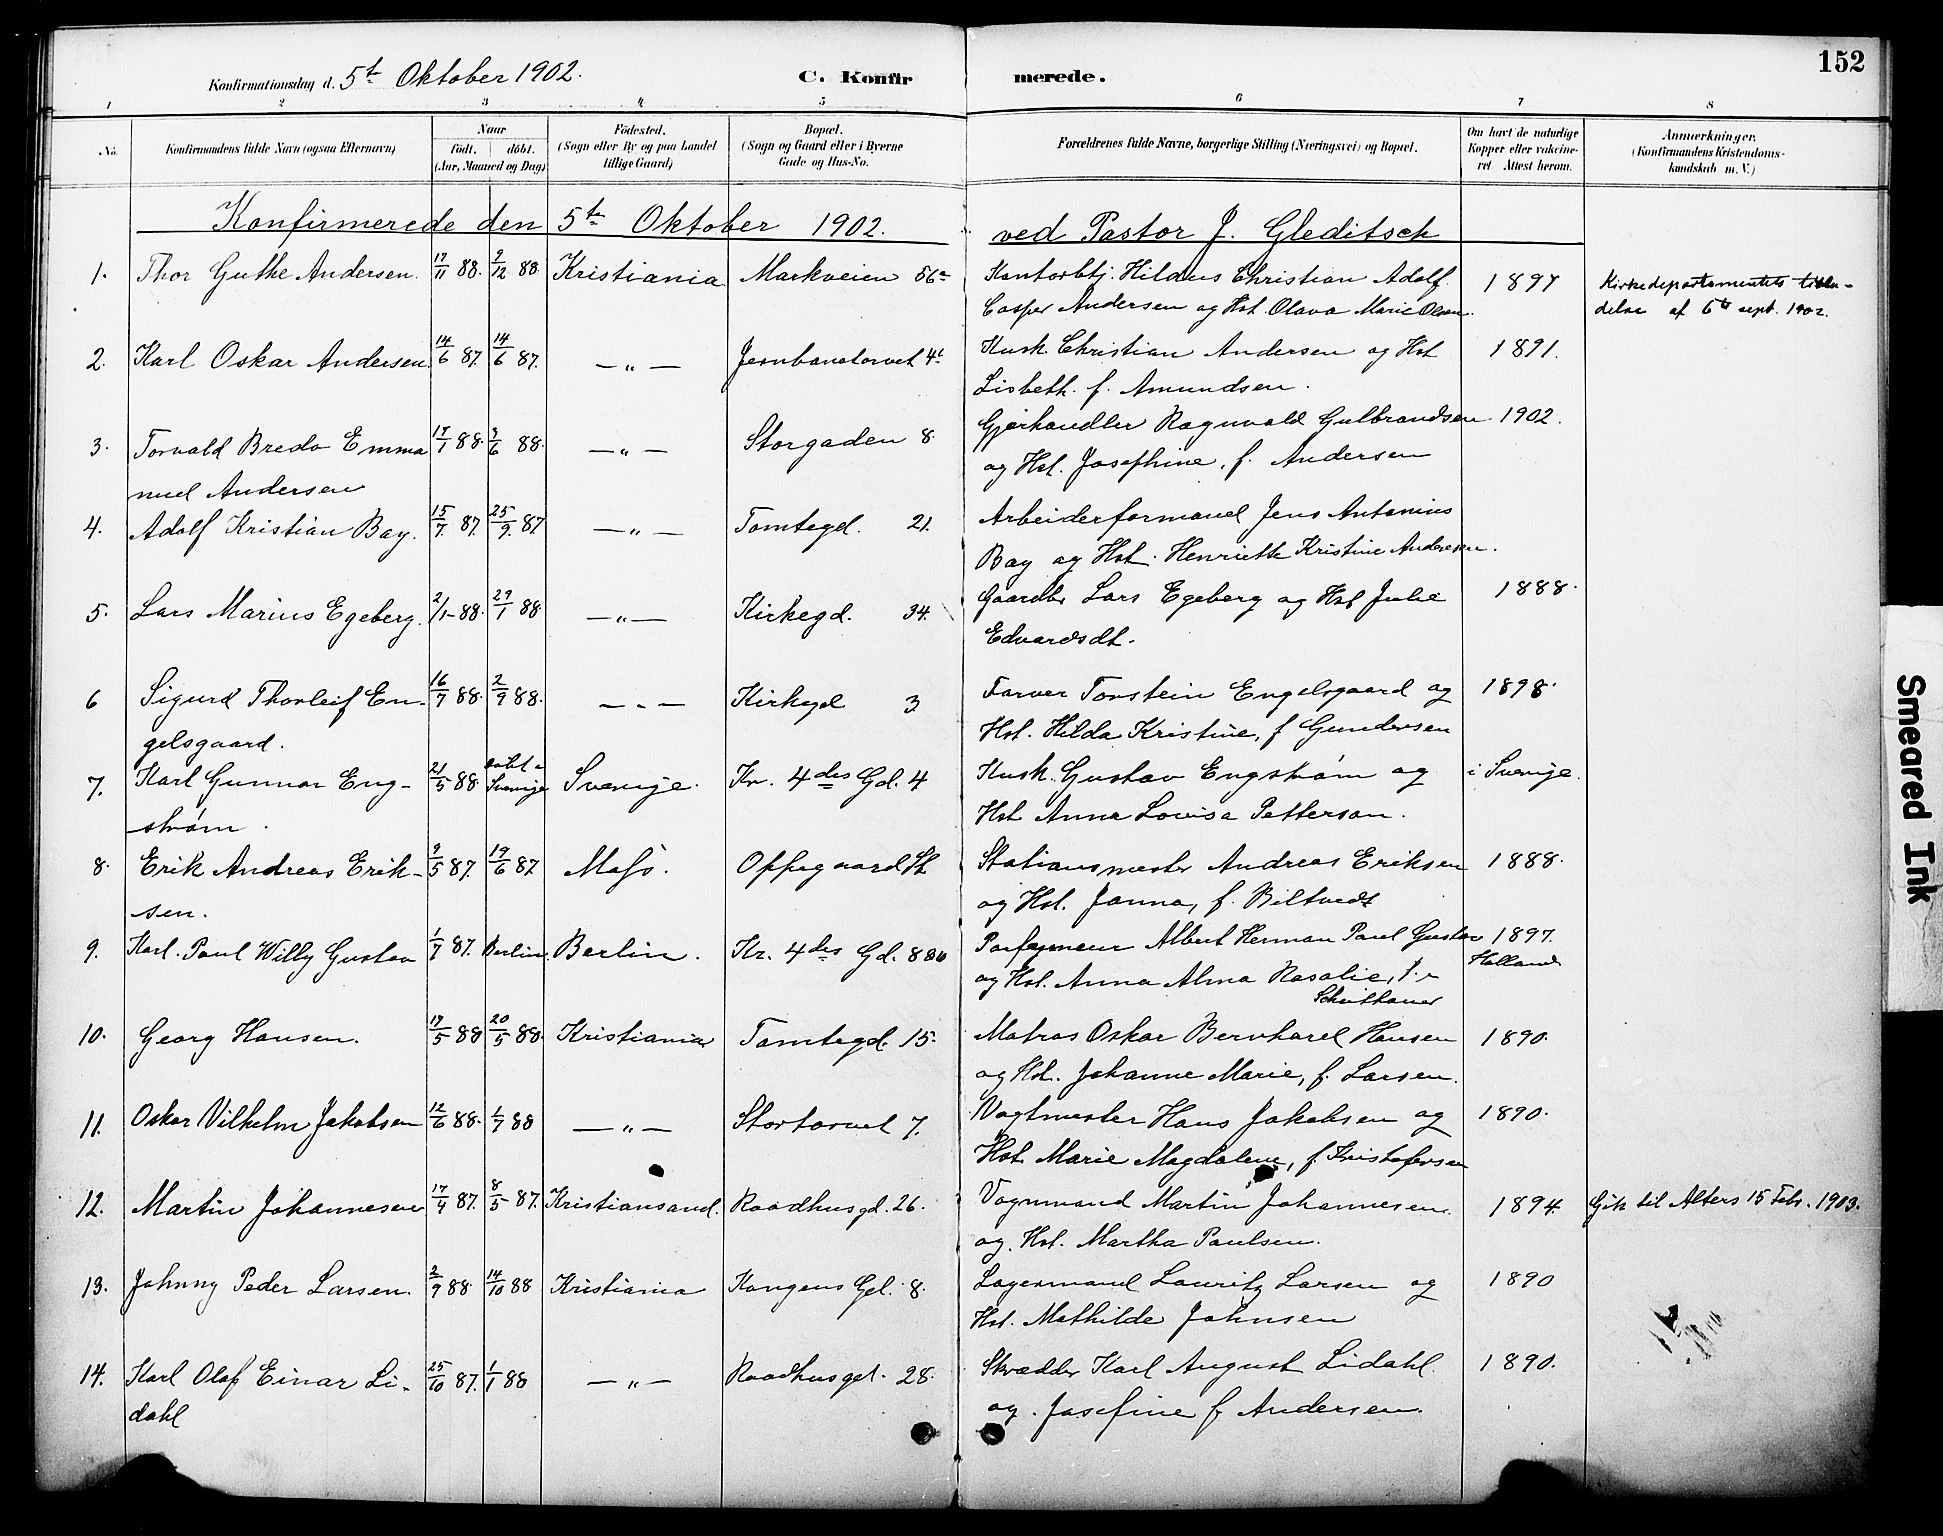 152
Konfirmationsdag d. 5te Oktober 1902. C. Konfirmerede.
1 2 3 4 5 6 7 8
No. Konfirmandens fulde Navn (ogsaa Efternavn) Naar Födt. döbt. (Aar, Maaned og Dag) Födested. (Sogn eller By og paa Landet tillige Gaard) Bopæl. (Sogn og Gaard eller i Byerne Gade og Hus-No. Forældrenes fulde Navne, borgerlige Stilling (Næringsvei) og Bopæl. Om havt de naturlige Kopper eller vakcineret Attest herom. Anmærkninger. (Konfirmandens Kristendomskundskab m. V.)
Konfirmerede den 5te Oktober 1902. ved Pastor J. Gleditsch
1. Thor Guthe Andersen. 17/11 88. 9/12 88 Kristiania Markveien 56a Kontorbtj. Hildus Christian Adolf 1897 Kirkedepartementets
Casper Andersen og Hst. Olava Marie Olsen. delse af 6te sept. 1902.
2. Karl Oskar Andersen 14/6 87. 14/6 87. — " — Jernbanetorvet 4 Kusk Christian Andersen og Hst 1891.
Lisbeth f. Amundsen.
3. Torvald Bredo Emma 17/1 88. 3/6 88. — " — Storgaden 8. Gjørhandler Ragnvald Gulbrandsen 1902.
nuel Andersen og Hst. Josephine, f. Andersen
4. Adolf Kristian Bay. 15/7. 87. 25/9. 87 — " — Tomtegd. 21. Arbeiderformand Jens Antonius
Bay og Hst. Henriette Kristine Andersen.
5. Lars Marius Egeberg. 2/1 - 88. 29/1 88 — " — Kirkegd. 34. Gaardbr Lars Egeberg og Hst Julie 1888.
Edvardsdt.
6 Sigurd Thorleif En- 16/7 88. 2/9 88. — " — Kirkegd 3 Farver Torstein Engelsgaard og 1898.
gelsgaard. Hst. Hilda Kristine, f Gundersen
7. Karl Gunnar Eng- 21/5 88 døbt i Sverige Sverige. Kr. 4des Gd. 4 Kusk Gustav Engstrøm og i Sverige.
strøm. Hst Anna Lovisa Petterson.
8. Erik Andreas Erik- 9/5 87. 19/6 87 Moss. Oppegaard St. Stationsmester Andreas Eriksen 1888.
sen. og Hst. Janna, f. Biltvedt
9. Karl Paul Willy Gustav 1/7 87. Berlin. Berlin. Kr. 4des Gd. 8 Albert Herman Paul Gustav 1897.
og Hst. Anna Alma Rosalie, f. Holland
10. Georg Hansen. 17/5 88 20/5 88. Kristiania Tomtegd. 15. Matros Oskar Bernhard Hansen 1890.
og Hst. Johanne Marie, f. Larsen.
11. Oskar Vilhelm Jakobsen 12/6 88. 1/7 88 — " — Stortorvet 7. Vagtmester Hans Jakobsen og 1890.
Hst. Marie Magdalene, f. Kristofersen
12. Martin Johannesen 17/4 87. 8/5 87. Kristiansand. Raadhusgd. 26. Vognmand Martin Johannesen 1894. Gik til Alters 15 Febr. 1903.
og. Hst. Martha Paulsen.
13. Johnny Peder Larsen. 2/9 88 14/10 88 Kristiania Kongens Gd. 8. Lagermand Lauritz Larsen og 1890
Hst. Mathilde Johnsen
14. Karl Olaf Einar Li- 25/10 87. 1/1 88 — " — Raadhusgd. 28. Skrædder Karl August Lidahl 1890.
dahl og Josefine f. Andersen.
Smeared Ink